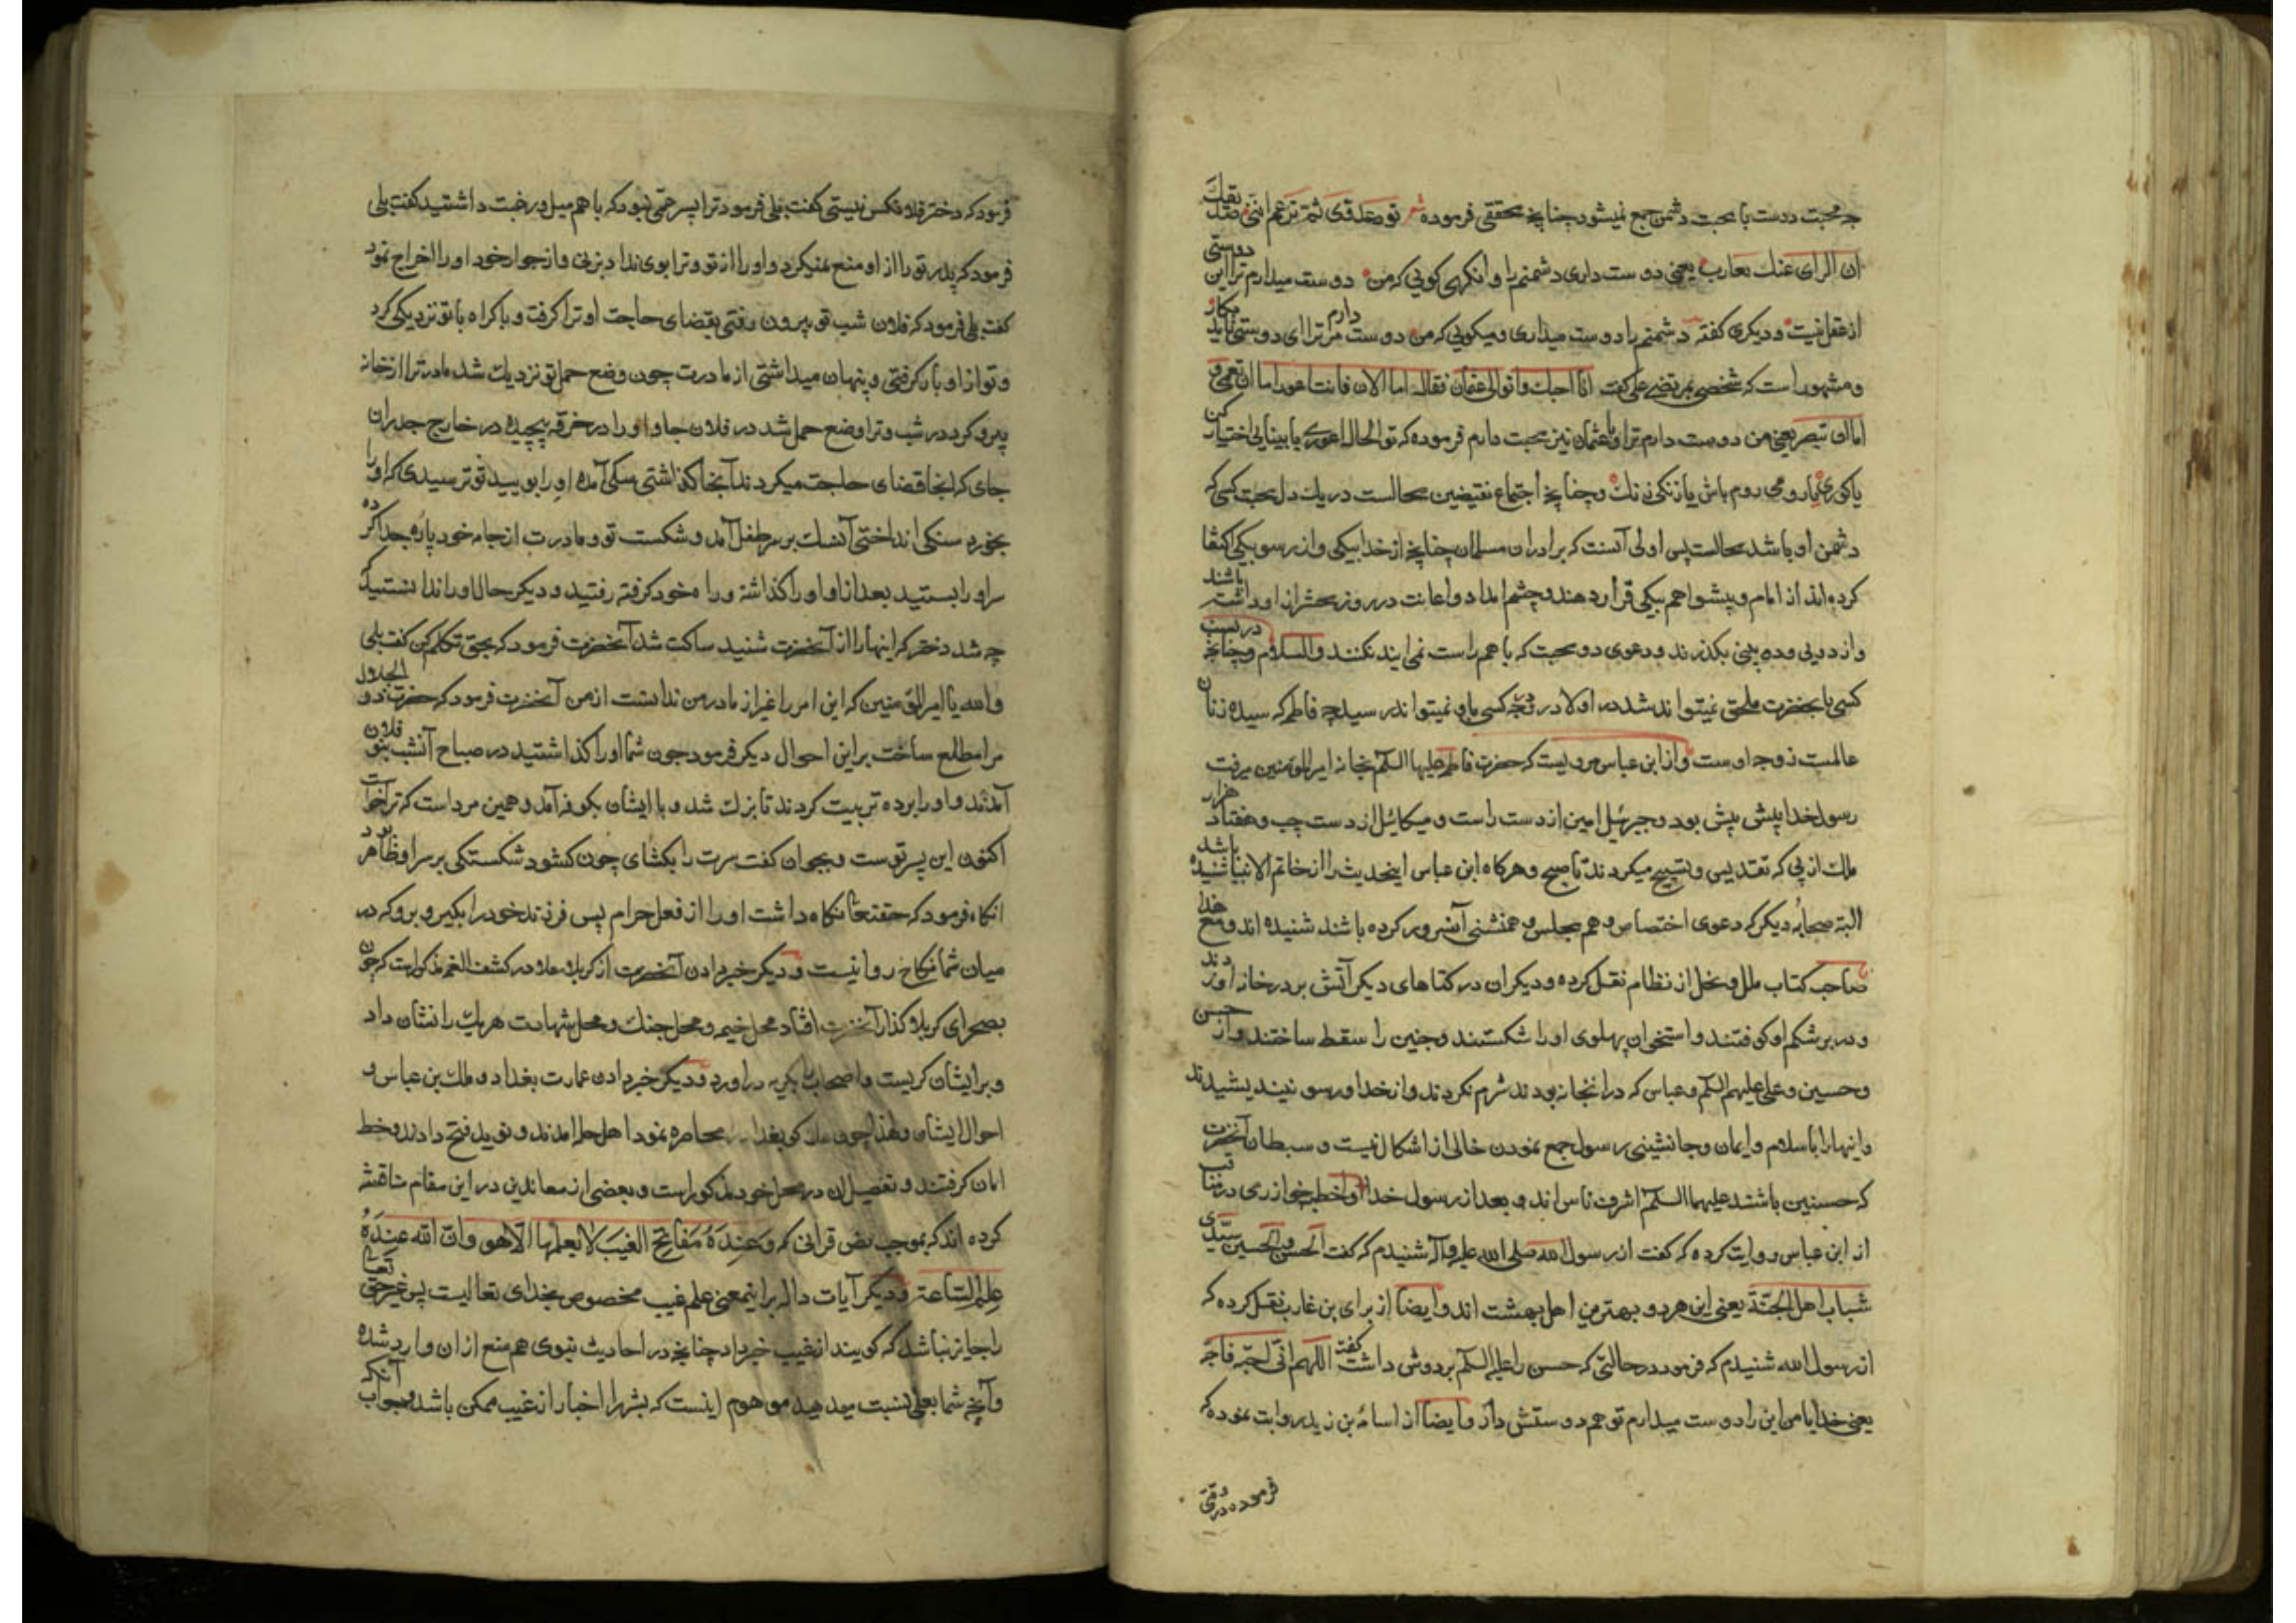 چه محبت دوست با محبت دشمن جمع نمیشود چنانچه محققی فرموده شعر تود عدوی ثم تزعم اننی صدیقک
ان الرای عنک لعازب یعنی دوست داری دشمنم را و انکهی کویی که من دوست میدارم ترا این دوستی
از عقل نیست و دیکری کفته دشمنم را دوست میداری و میکویی که من دوست دارم مر ترا ای دوستی ناید مکار
و مشهور است که شخصی بمرتضی علی کفت انا احبک و اتوالی عثمان فقال اما الان فانت اعور اما ان تعمی و
اما ان تبصر یعنی من دوست دارم ترا و با عثمان نیز محبت دارم فرموده که تو الحال اعوری یا بینایی اختیار کن
یا کوری یا رومی روم باش یا زنکی زنک و چنانچه اجتماع نقیضین محالست در یک دل محبت کسی که
دشمن او باشد محالست پس اولی آنست که برادران مسلمان چنانچه از خدا بیکی و از رسو بیکی اکتفا
کرده اند از امام و پیشوا هم بیکی قرار دهند و چشم امداد و اعانت در روز محشر از او داشته باشند
و از دویی و ده بینی بکذرند و دعوی دو محبت که با هم راست نمی ایند نکنند والسلام و چنانچه در نسب
کسی با نحضرت ملحق نمیتواند شد در اولاد و زوجه کسی باو نمیتواند رسید چه فاطمه که سیده زنان
عالمست زوجه اوست و از ابن عباس مرویست که حضرت فاطمه علیها السلم بخانه امیر المؤمنین میرفت
رسول خدا پیش پیش بود و جبرئیل امین از دست راست و میکائیل از دست چپ و هفتاد هزار
ملک از پی که تقدیس و تسبیح میکردند تا صبح و هرکاه ابن عباس اینحدیث را از خاتم الانبیا شنیده باشد
البته صحابهٔ دیکر که دعوی اختصاص و هم مجلس و همنشنی آنسرور کرده باشند شنیده اند و مع هذا
صاحب کتاب ملل و نحل از نظام نقل کرده و دیکران در کتابهای دیکر آتش بر در خانه او زدند
و در بر شکم او کوفتند و استخوان پهلوی او را شکستند و جنین را سقط ساختند و از حسن
و حسین و علی علیهم السلم و عباس که در انخانه بودند شرم نکردند و از خدا و رسو نیندیشیدند
و اینها را با سلام و ایمان و جانشینی رسول جمع نمودن خالی از اشکال نیست و سبطان آنحضرت
که حسنین باشند علیهما السلم اشرف ناس اند و بعد از رسول خدا اخطب خوارزمی در مناقب
از ابن عباس روایت کرده که کفت از رسول الله صلی الله علیه و آله شنیدم که کفت الحسن و الحسین سیدی
شباب اهل الجنة یعنی این هر دو بهترین اهل بهشت اند و ایضا از برای بن غارب نقل کرده که
از رسول الله شنیدم که فرمود در حالتی که حسن را علیه السلم بر دوش داشت کفت اللهم انی احبه فاحبه
یعنی خدایا من این را دوست میدارم تو هم دوستش دار و ایضا از اسامهٔ بن زید روایت نموده که
فرموده در وقتی
فرمود که دختر فلان کس نیستی کفت بلی فرمود ترا پسر عمی نبود که با هم میل و رغبت داشتید کفت بلی
فرمود که پدر تو را از او منع نمیکرد و او را از تو و ترا بوی نداد بزنی و از جوار خود او را اخراج نمود
کفت بلی فرمود که فلان شب تو بیرون رفتی بقضای حاجت او ترا کرفت و باکراه با تو نزدیکی کرد
و تو از او بار کرفتی و پنهان میداشتی از مادرت چون وضع حمل تو نزدیک شد مادر ترا از خانه
بیرو کرد در شب و ترا وضع حمل شد در فلان جا و او را در خرقه پیچیده در خارج جدران
جای که انجا قضای حاجت میکردند آنجا کذاشتی سکی آمده او را بویید تو ترسیدی که او را
بخورد سنکی انداختی آنسنک بر سر طفل آمد و شکست تو و مادرت از جامه خود پاره جدا کرده
سر او را بستید بعد از او او را کذاشته و راه خود کرفته رفتید و دیکر حال او را ندانستید که
چه شد دختر که اینها را از آنحضرت شنید ساکت شد آنحضرت فرمود که بحق تکلم کن کفت بلی
والله یا امیر المؤمنین که این امر را غیر از مادر من ندانست از من آنحضرت فرمود که حضرت ذو الجلال
مرا مطلع ساخت بر این احوال دیکر فرمود چون شما او را کذاشتید در صباح آنشب بنو فلان
آمدند و او را برده تربیت کردند تا بزرک شد و با ایشان بکوفه آمد و همین مرد است که ترا خواست
اکنون این پسر توست و بجوان کفت سرت را بکشای چون کشود شکستکی بر سر او ظاهر بود
انکاه فرمود که حقتعا نکاه داشت او را از فعل حرام پس فرزند خود را بکیر و برو که در
میان شما نکاح روا نیست و دیکر خبر دادن آنحضرت از کربلا در کشف الغمه مذکور است که چون
بصحرای کربلا کذار آنحضرت افتاد محل خیم و محل جنک و محل شهادت هر یک را نشان داد
و بر ایشان کریست و اصحاب بکریه در اورد و دیکر خبر دادن عمارت بغداد و ملک بن عباس و
احوال ایشان و لهذا چون هلاکو بغداد محاصره نمود اهل حله امدند و نوید فتح دادند و خط
امان کرفتند و تفصیل ان در محل خود مذکور است و بعضی از معاندین در این مقام مناقشه
کرده اند که بموجب نص قرانی که وَعِندَهُ مَفَاتِحُ الغَیبِ لَا یَعلَمُهَا اِلّا هُو و اِنّ اللّه عِندَهُ
عِلمُ السّاعَة و دیکر آیات داله بر اینمعنی علم غیب مخصوص بخدای تعالیست پس غیر حق تعالی
را جایز نباشد که کویند از غیب خبر داد چنانچه در احادیث نبوی هم منع از ان وارد شده
و آنچه شما بعلی نسبت میدهید موهوم اینست که بشر را اخبار از غیب ممکن باشد و جواب آنکه